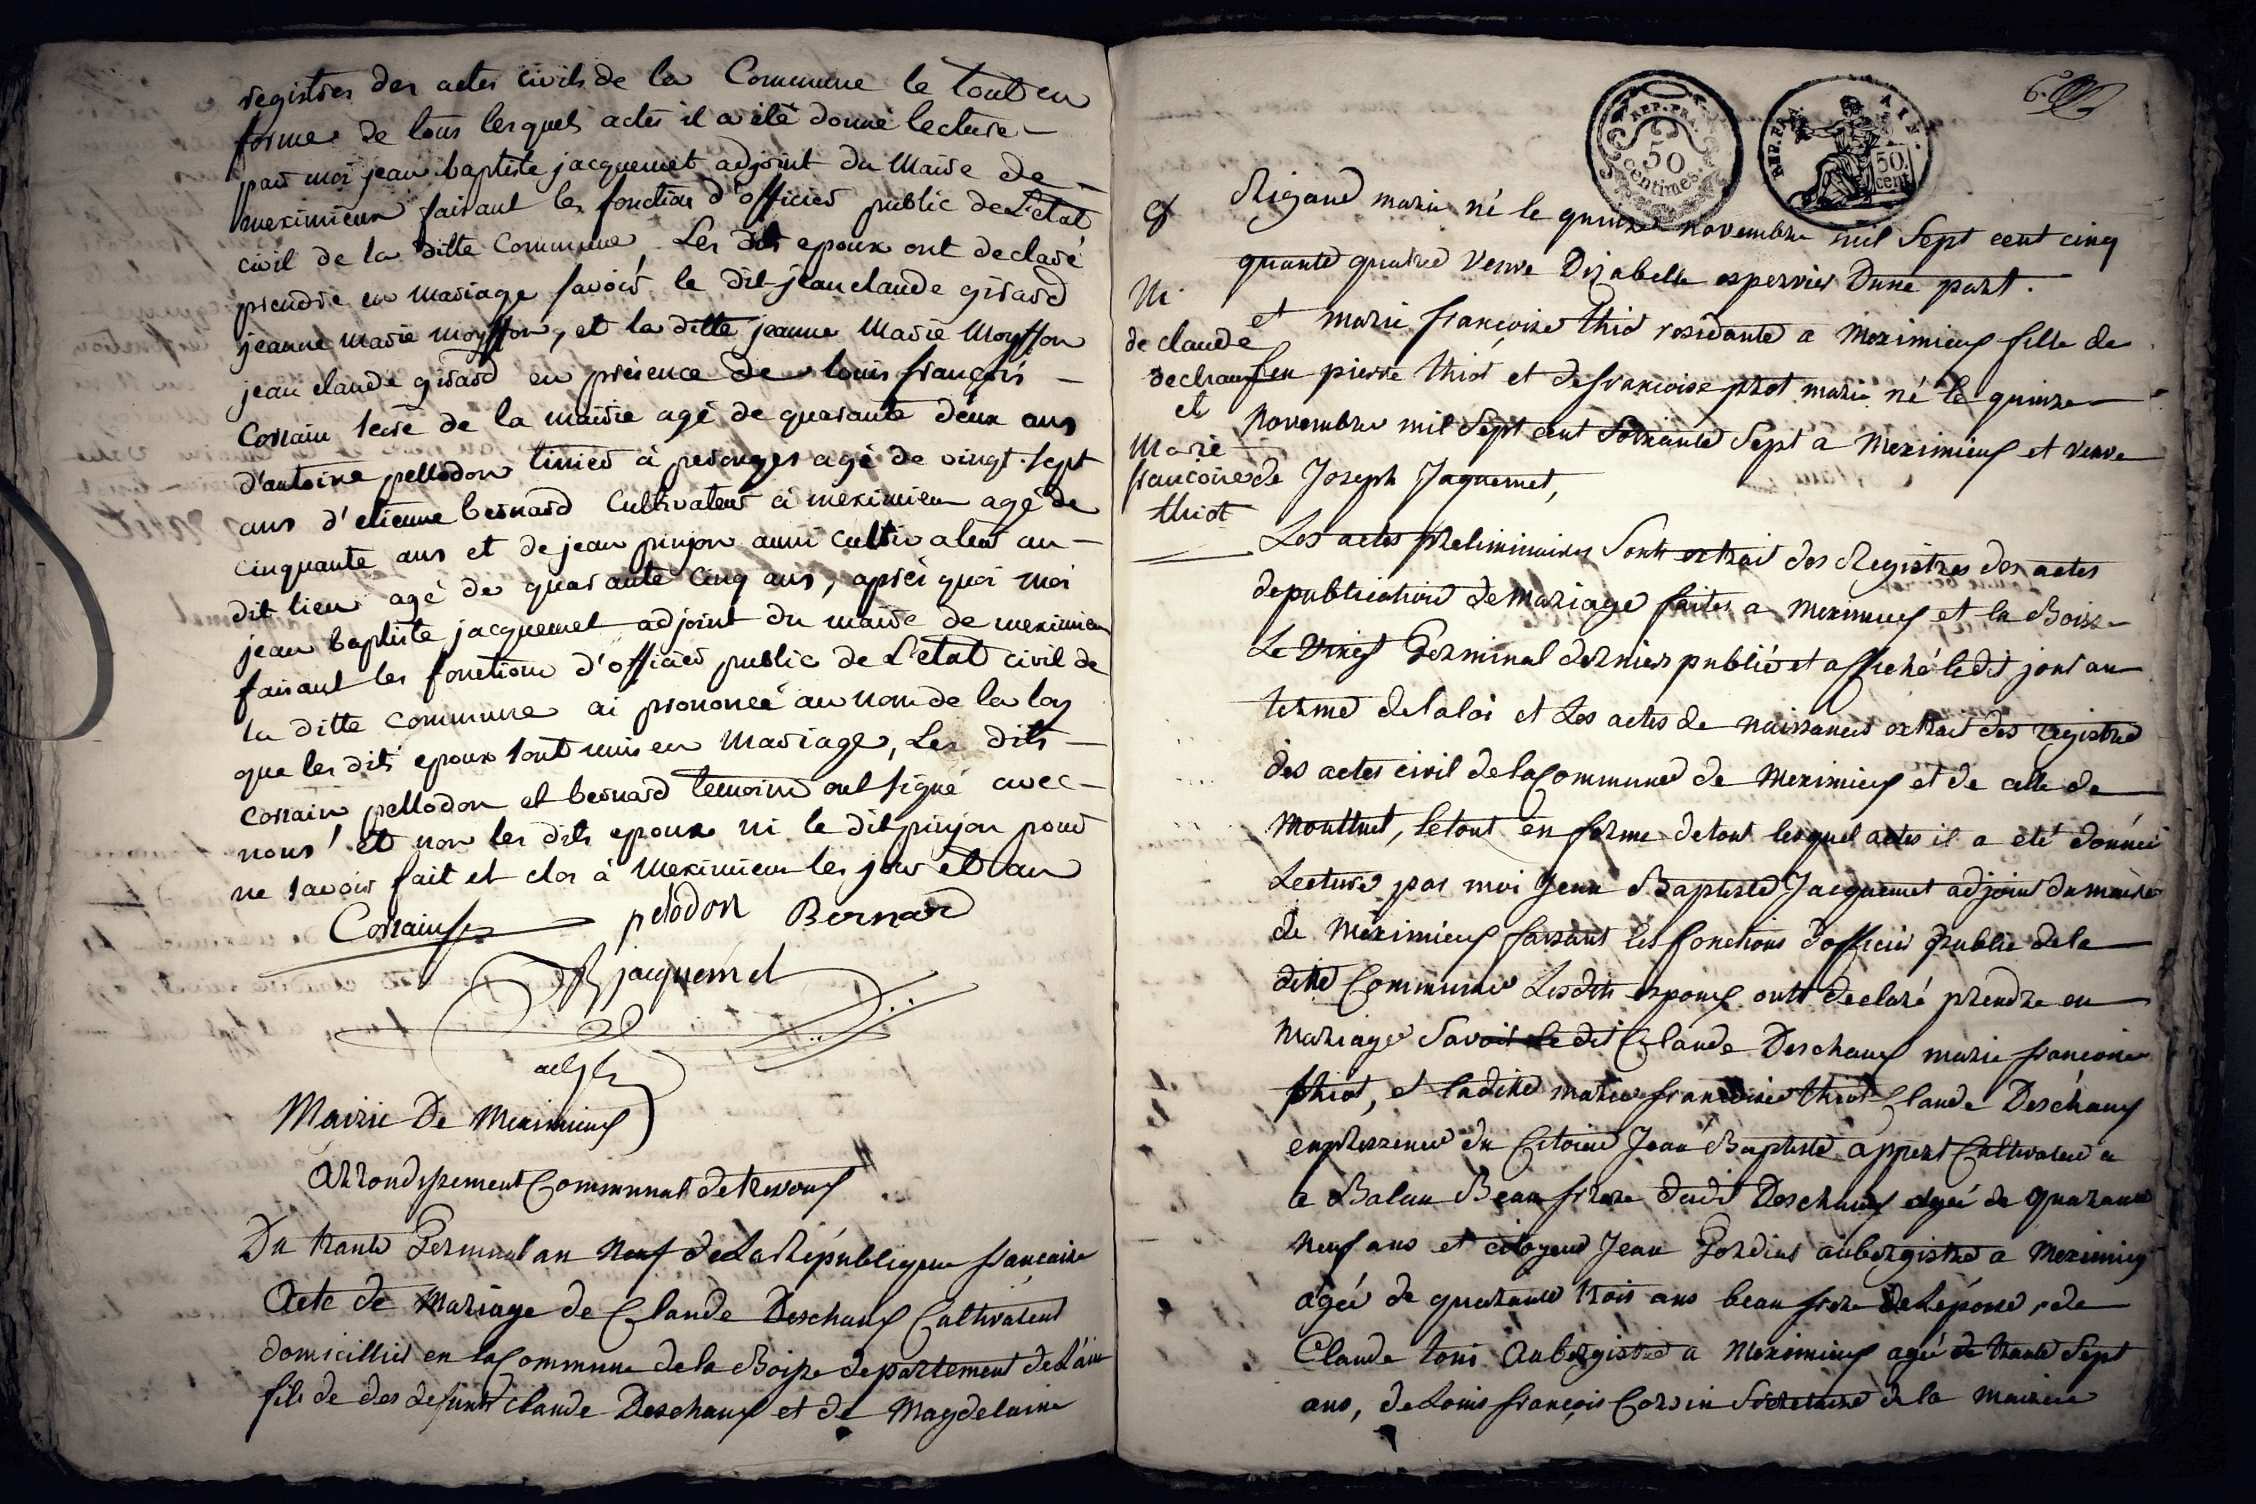 registres des actes civils de la Commune le tout en
forme de tous lesquels actes il a été donné lecture
par moi jean baptiste jacquemet adjoint du Maire de
meximieux faisant les fonction d'officier public de L'etat
civil de la ditte Commune, Les dits epoux ont declaré
prendre en mariage savoir le dit jean claude girard
jeanne marie moysson, et la ditte jeanne Marie Moysson
jean claude girard en présence de louis françois
Corrain secre de la mairie agé de quarante deux ans
d'antoine pellodon à perouges agé de vingt sept
ans d'etienne bernard Cultivateur à meximieux agé de
cinquante ans et de jean pinjon aussi cultivateur au
dit lieu agé de quarante cinq ans, après quoi moi
jean baptiste jacquemet adjoint du maire de meximieux
faisant les fonctions d'officier public de L'etat civil de
la ditte commune ai prononcé au nom de la loy
que les dits epoux sont unis en Mariage, Les dits
Corrain pellodon et bernard temoins ont signé avec
nous et non les dits epoux ni le dit pinjon pour
ne savoir fait et clos à Meximieux les jour et an
Corrain pelodon Bernard
jacquemet
adjt
Mairie De Meximieux
Arrondissement Communal de trevoux
Du trante Germinal an Neuf de La République francaise
Acte de Mariage de Claude Deschaux Cultivateur
domicillié en la Commune de la Boisse departement de L'ain
fils de des defunts Claude Deschaux et de Magdelaine
REP. FRA.
50
centimes.
REP. FRA. AIN.
50
cent
6.
Rigaud marie né le quinze novembre mil Sept cent cinq
quante quatre Veuve Dizabelle espervier Dune part.
et marie françoise thiot residante a Meximieux fille de
feu pierre thiot et de francoise prot marie né le quinze
Novembre mil Sept cent Soixante Sept a Meximieux et veuve
de Joseph Jaquemet,
M.
de claude
dechaux
et
Marie
francoise
thiot
Les actes preliminaires Sont extrait des Registres des actes
de publication de Mariage faites a Meximieux et la Boisse
Le Vingt Germinal dernier publié et affiché le dit jour au
terme de la loi et Les actes de naissances extrait des registre
des actes civil de la Commune de Meximieux et de celle de
Montluel, le tout en forme de tout lesquel actes il a été donnée
Lecture par moi Jean Baptiste Jacquemet adjoint du maire
de Meximieux faisant les fonctions d'officier public de la
ditte Commune Lesdits espoux ont declaré prendre en
Mariage Savoir le dit Claude Deschaux marie francoise
thiot, et ladite marie francoise thiot Claude Deschaux
en presence du Citoien Jean Baptiste appert Cultivateur a
a Balan Beau frere dudit Deschaux agée de quarante
Neuf ans et citoyen Jean Gordiat aubergistre a Meximieux
agée de quarante trois ans beau frere de Lépouse, de
Claude aubergistre a Meximieux agée de trante Sept
ans, de Louis françois Corrain Secretaire de la Mairie